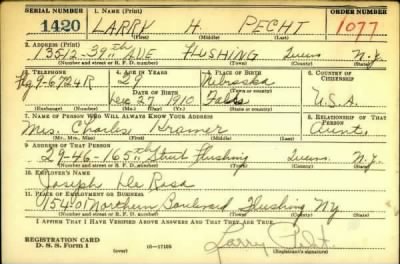 SERIAL NUMBER 1. NAME (Print) ORDER NUMBER
1420 LARRY H. PECHT 1077
(First) (Middle) (Last)
2. ADDRESS (Print)
13512-39th AVE FLUSHING Queens N.Y.
(Number and street or R. F. D. number) (Town) (County) (State)
3. TELEPHONE 4. AGE IN YEARS 5. PLACE OF BIRTH 6. COUNTRY OF CITIZENSHIP
9-6724R 29 Nebraska
DATE OF BIRTH (Town or county)
Dec 27 1910 Falls U.S.A.
(Exchange) (Number) (Mo.) (Day) (Yr.) (State or country)
7. NAME OF PERSON WHO WILL ALWAYS KNOW YOUR ADDRESS 8. RELATIONSHIP OF THAT PERSON
Mrs. Charles Kramer Aunt
(Mr., Mrs., Miss) (First) (Middle) (Last)
9. ADDRESS OF THAT PERSON
29-46-165th Street Flushing Queens N.Y.
(Number and street or R. F. D. number) (Town) (County) (State)
10. EMPLOYER'S NAME
Joseph De Rosa
11. PLACE OF EMPLOYMENT OR BUSINESS
15401 Northern Boulevard Flushing NY
(Number and street or R. F. D. number) (Town) (County) (State)
I AFFIRM THAT I HAVE VERIFIED ABOVE ANSWERS AND THAT THEY ARE TRUE.
REGISTRATION CARD
D. S. S. Form 1 (over) 16—17105 Larry Pecht
(Registrant's signature)